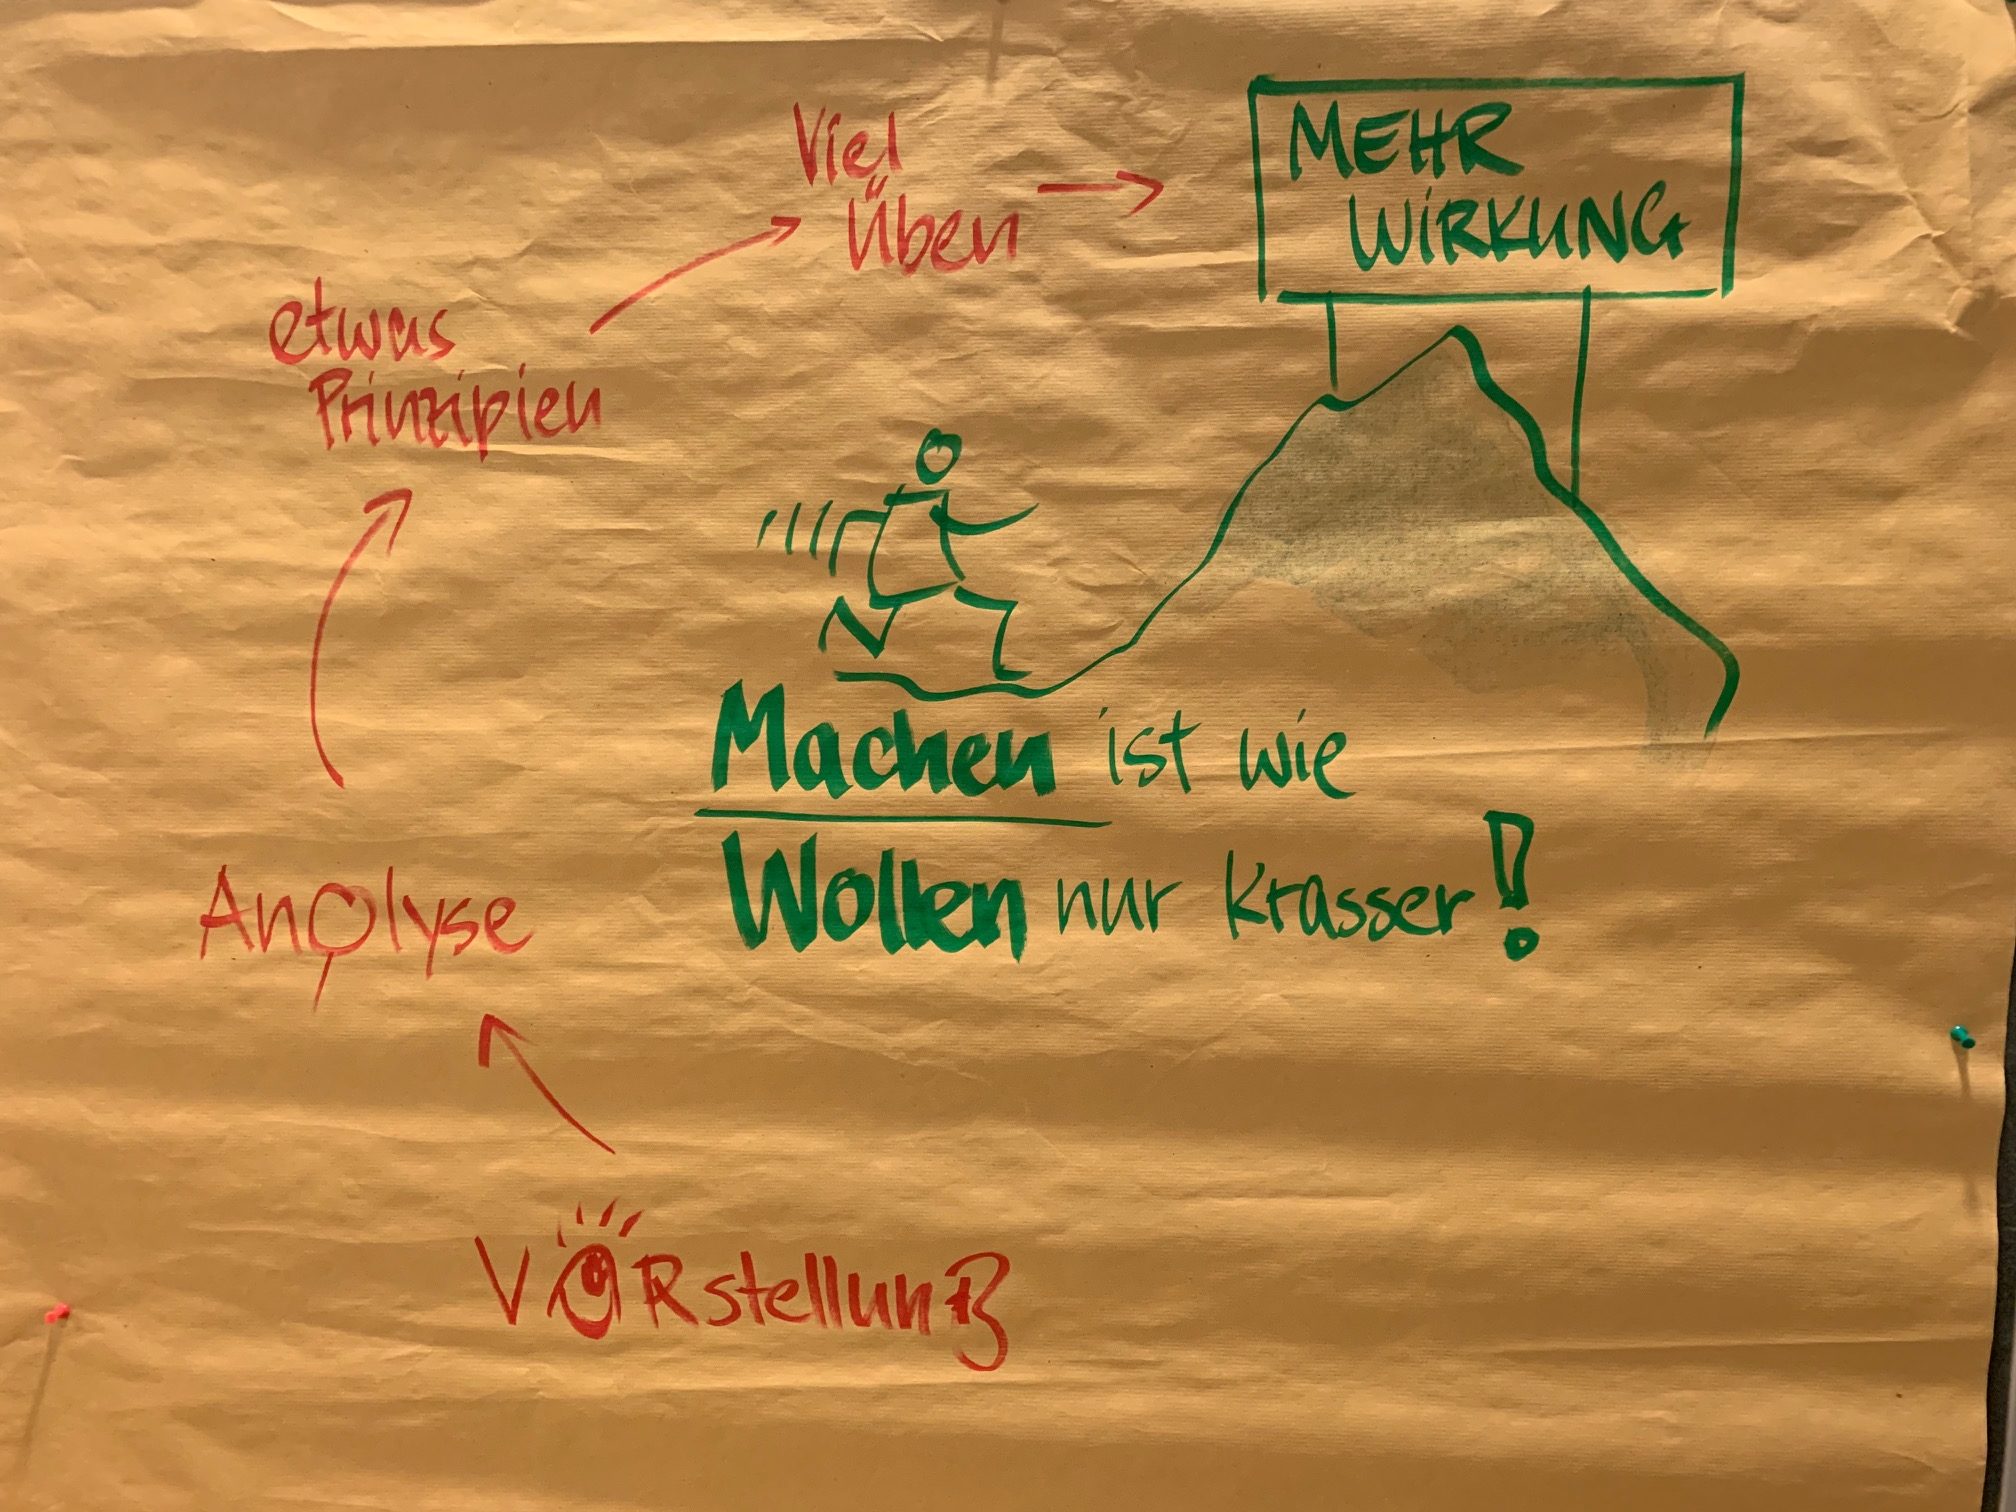 Viel
Üben
MEHR
WIRKUNG
etwas
Prinzipien
Machen ist wie
Wollen nur krasser!
Analyse
VORstellung